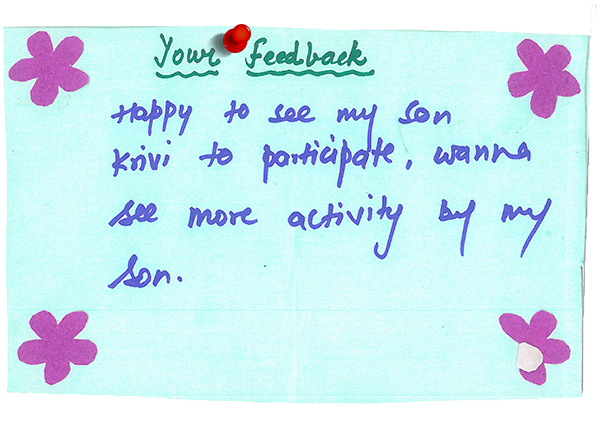 Your Feedback
Happy to see my son
Krivi to participate, wanna
see more activity by my
son.